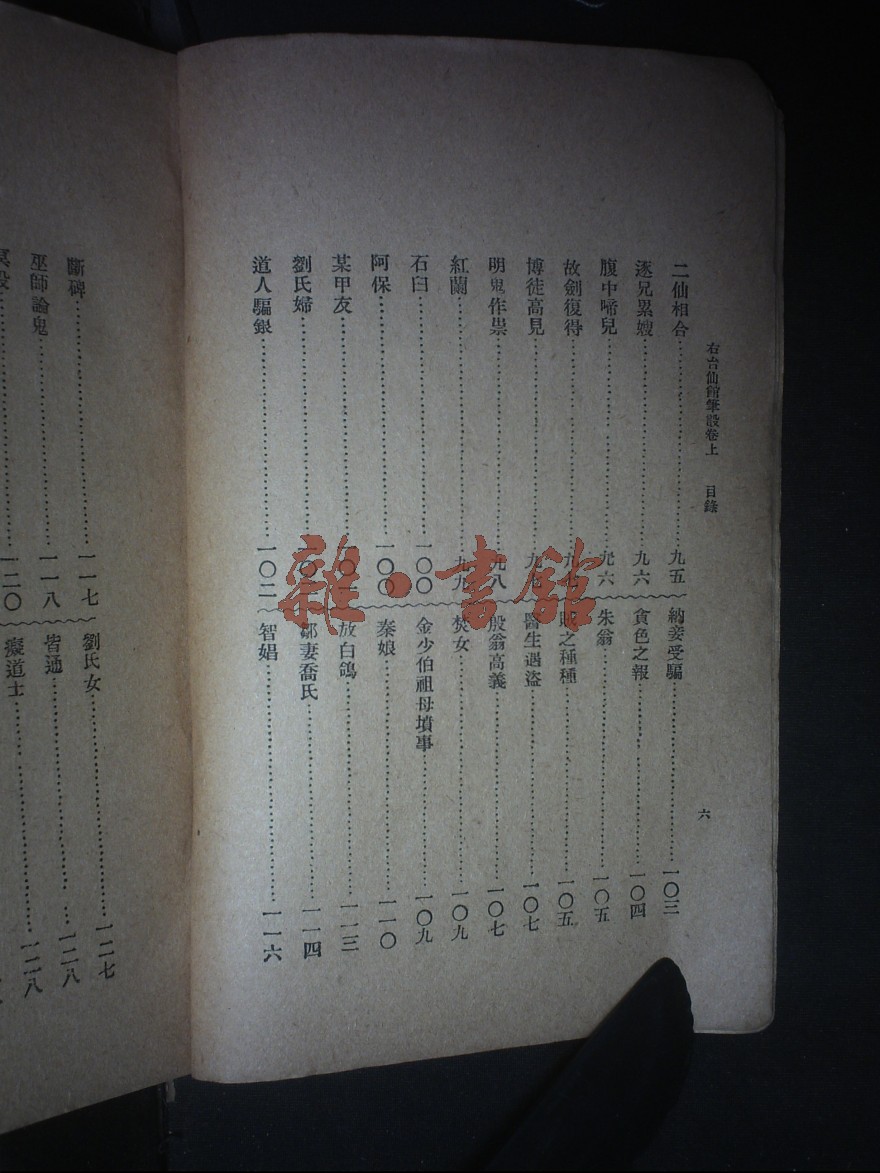 右台仙館筆記卷上　目錄
六
二仙相合……九五
逐兄累嫂……九六
腹中啼兒……九六
故劍復得……九七
博徒高見……九七
明鬼作祟……九八
紅蘭……九九
石臼……一〇〇
阿保……一〇〇
某甲友
劉氏婦
道人騙銀……一〇二
納妾受騙……一〇三
貪色之報……一〇四
朱翁……一〇五
之種種……一〇五
醫生遇盜……一〇七
殷翁高義……一〇七
焚女……一〇九
金少伯祖母墳事……一〇九
秦娘……一一〇
放白鴿……一一三
鄒妻喬氏……一一四
智娼……一一六
斷碑……一一七
巫師論鬼……一一八
一二〇
劉氏女……一二七
皆通……一二八
癡道士……一二八
雜·書館